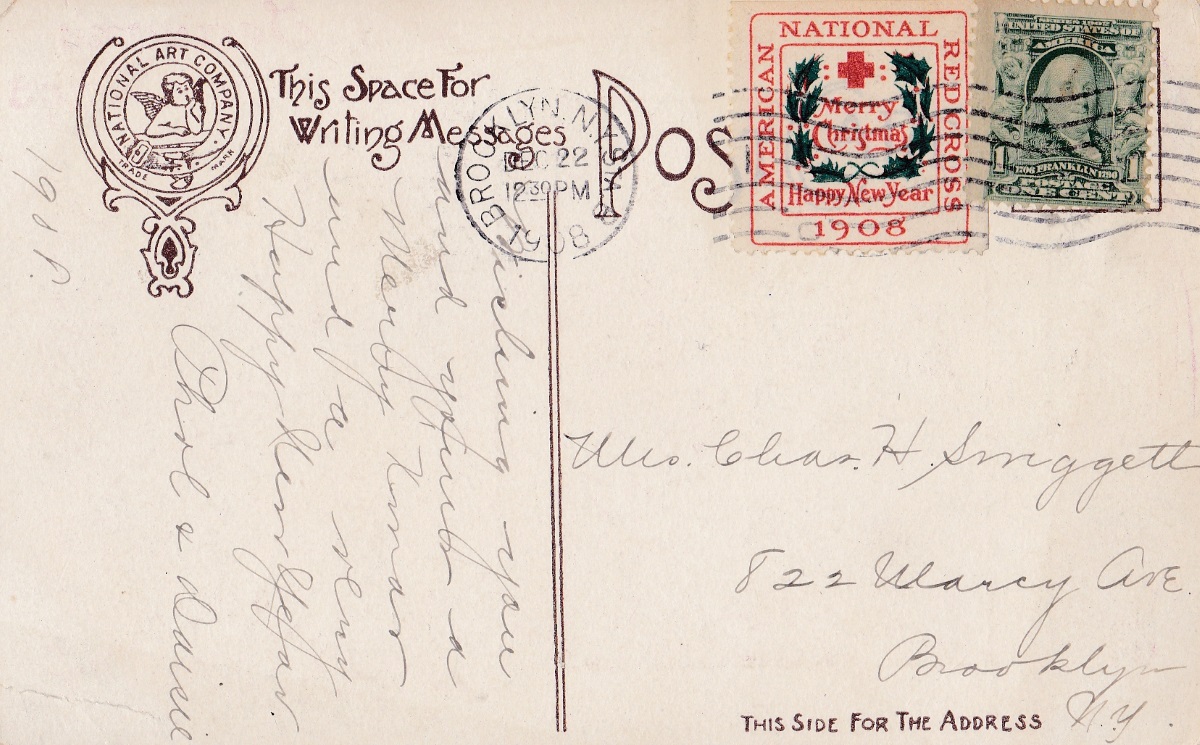 NATIONAL ART COMPANY.
TRADE MARK
This Space For
Writing Messages
POS
BROOKLYN, N.Y.
DEC 22
12 30 PM
1908
AMERICAN NATIONAL RED CROSS
Merry
Christmas
Happy New Year
1908
SERIES 1902
UNITED STATES OF
AMERICA
1 FRANKLIN 1
1706 1790
POSTAGE
ONE CENT
Wishing you
and yours a
Merry Xmas
and a very
Happy New Year.
& Daisie
1908.
Mrs. Chas. H. Swiggett
822 Marcy Ave
Brooklyn
N.Y.
THIS SIDE FOR THE ADDRESS